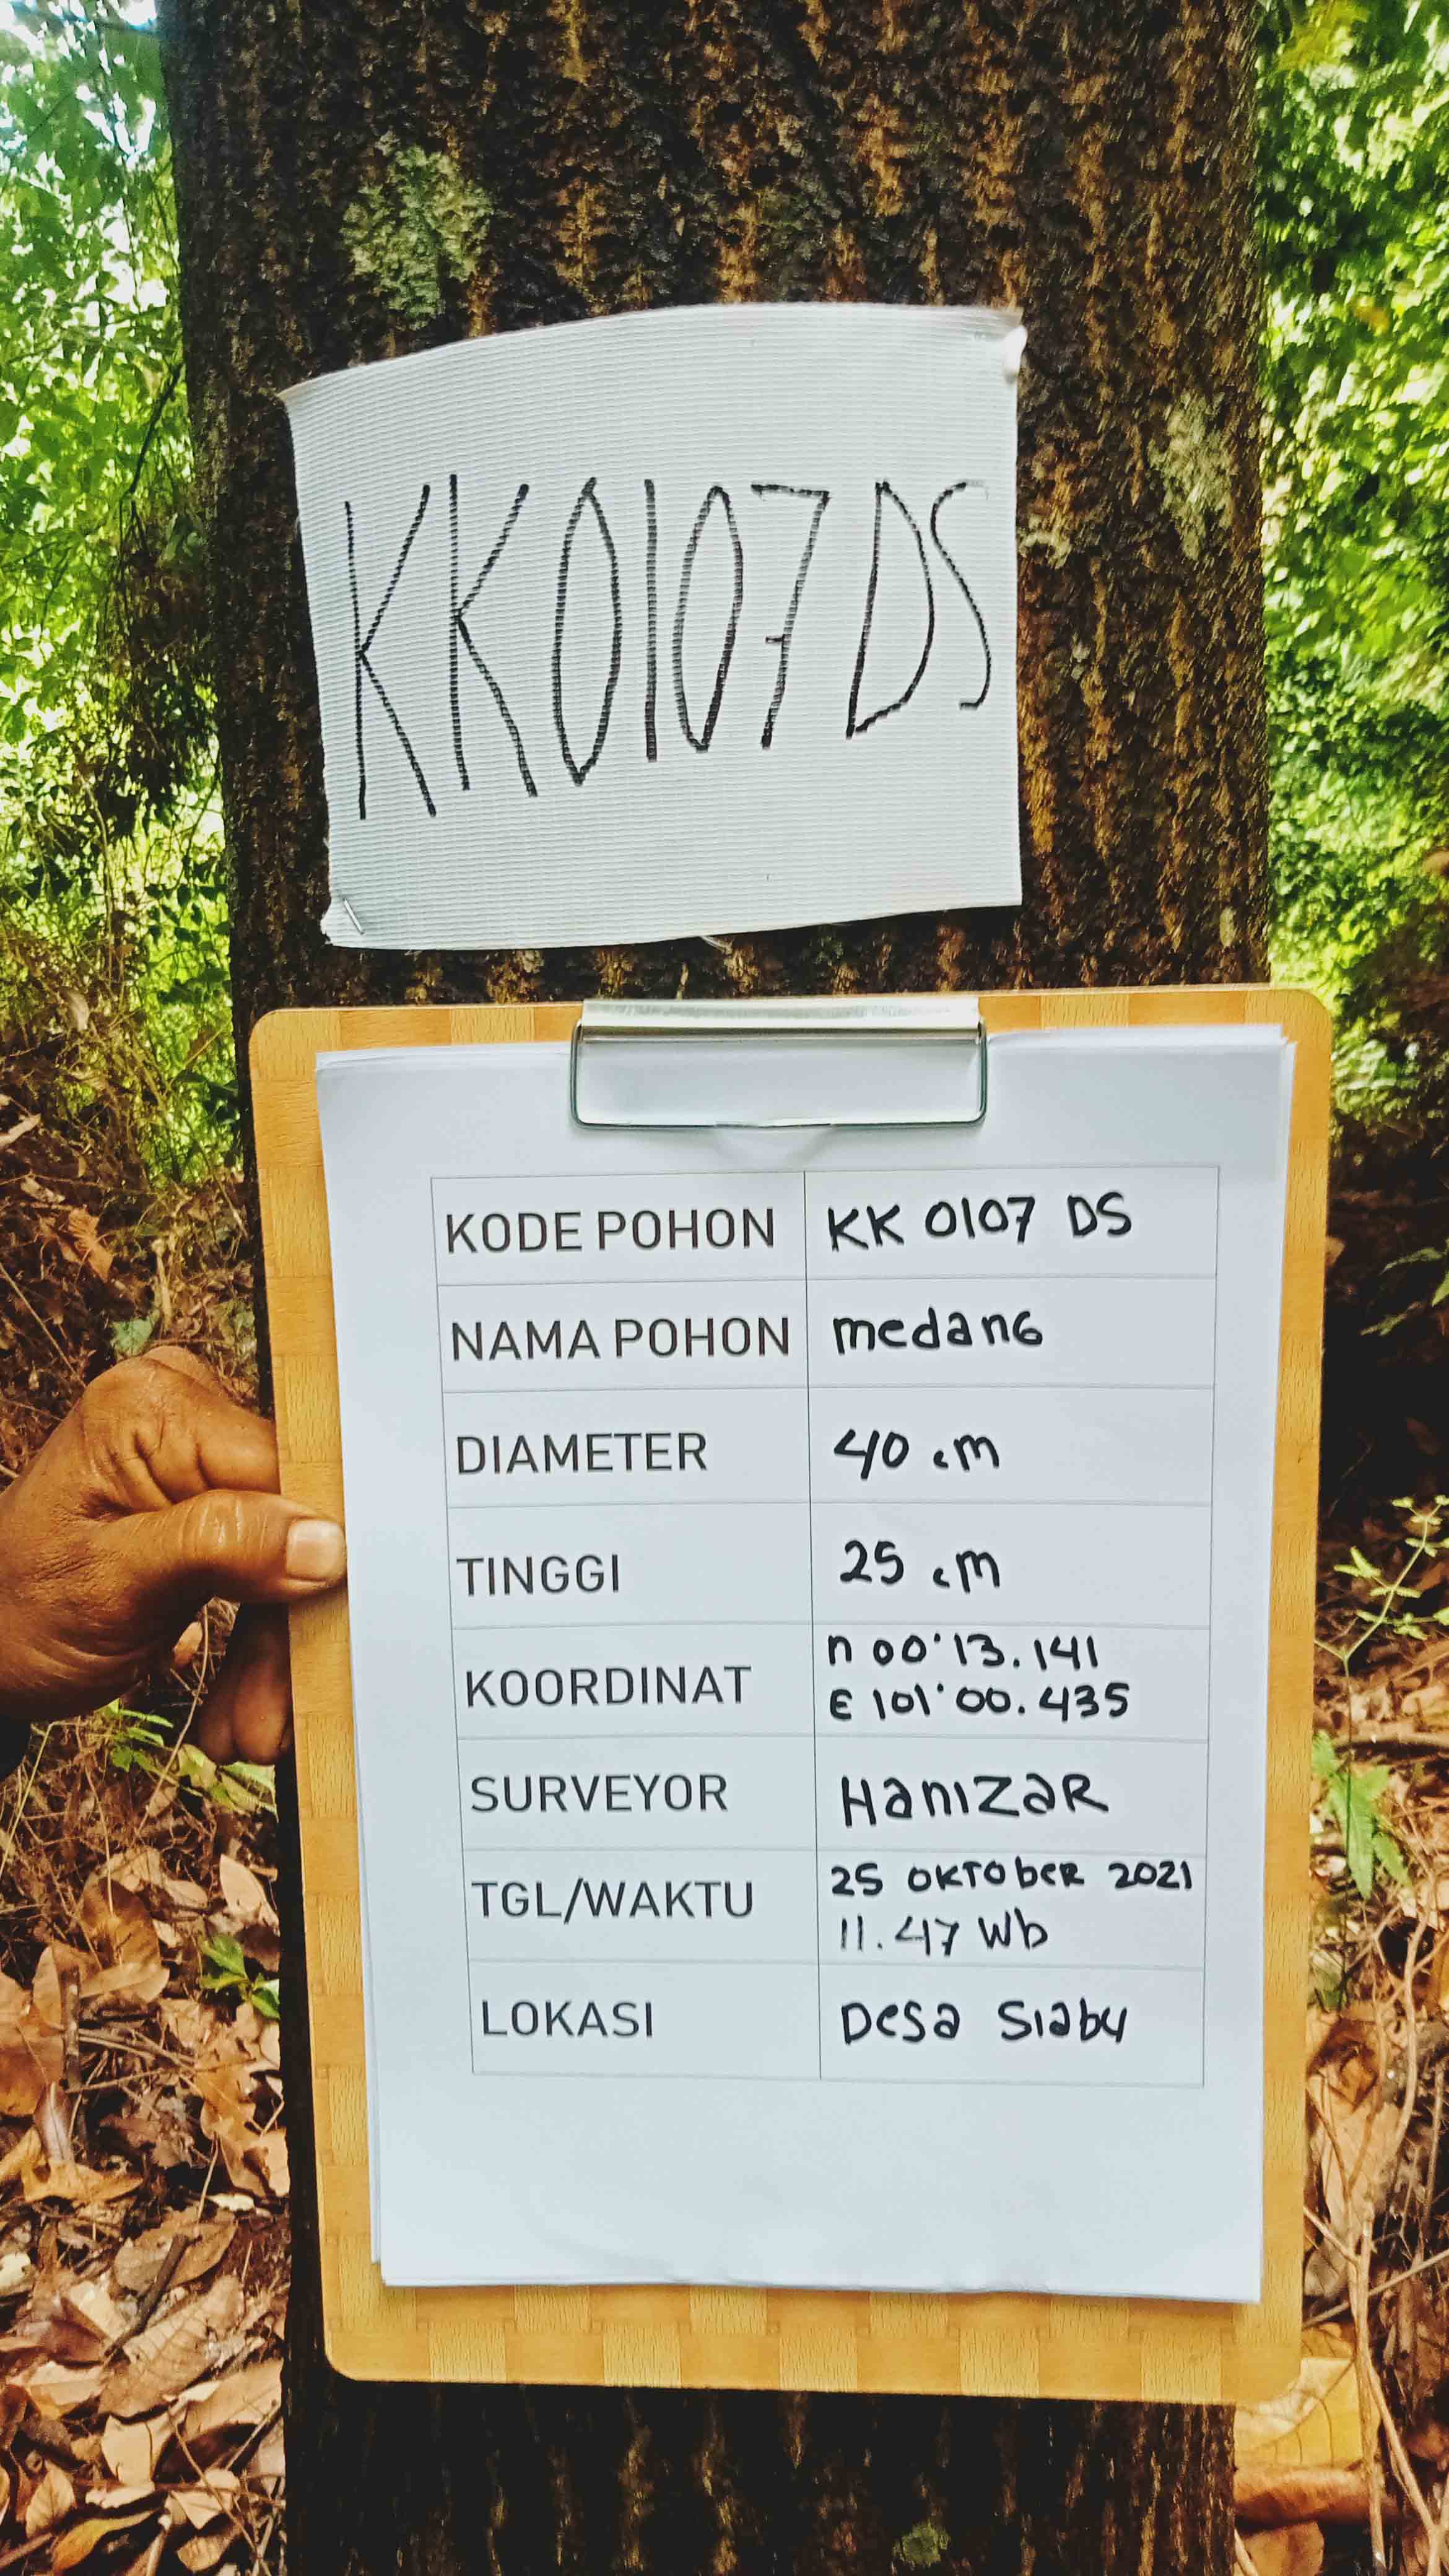 KK0107DS
KODE POHON KK 0107 DS
NAMA POHON medanG
DIAMETER 40 cm
TINGGI 25 cm
KOORDINAT n 00°13.141
E 101°00.435
SURVEYOR HanIZaR
TGL/WAKTU 25 OKTObeR 2021
11.47 Wb
LOKASI Desa Siabu